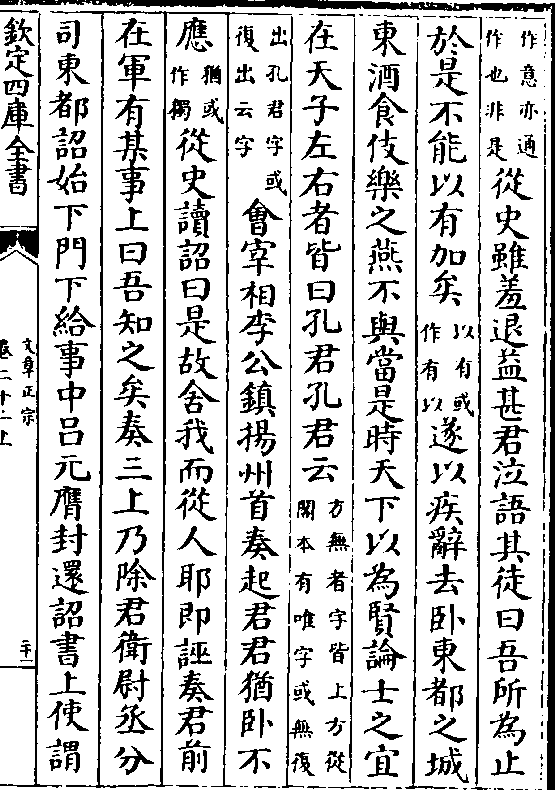 作意亦通作也非是從史雖羞退益甚君泣語其徒曰吾所為止
於是不能以有加矣以有或作有以遂以疾辭去卧東都之城
東酒食伎樂之燕不與當是時天下以為賢論士之宜
在天子左右者皆曰孔君孔君云方無者字皆上方從閣本有唯字或無復
出孔君字或復出云字會宰相李公鎮揚州首奏起君君猶卧不
應猶或作獨從史讀詔曰是故舍我而從人耶即誣奏君前
在軍有某事上曰吾知之矣奏三上乃除君衛尉丞分
司東都詔始下門下給事中吕元膺封還詔書上使謂
欽定四庫全書
文章正宗